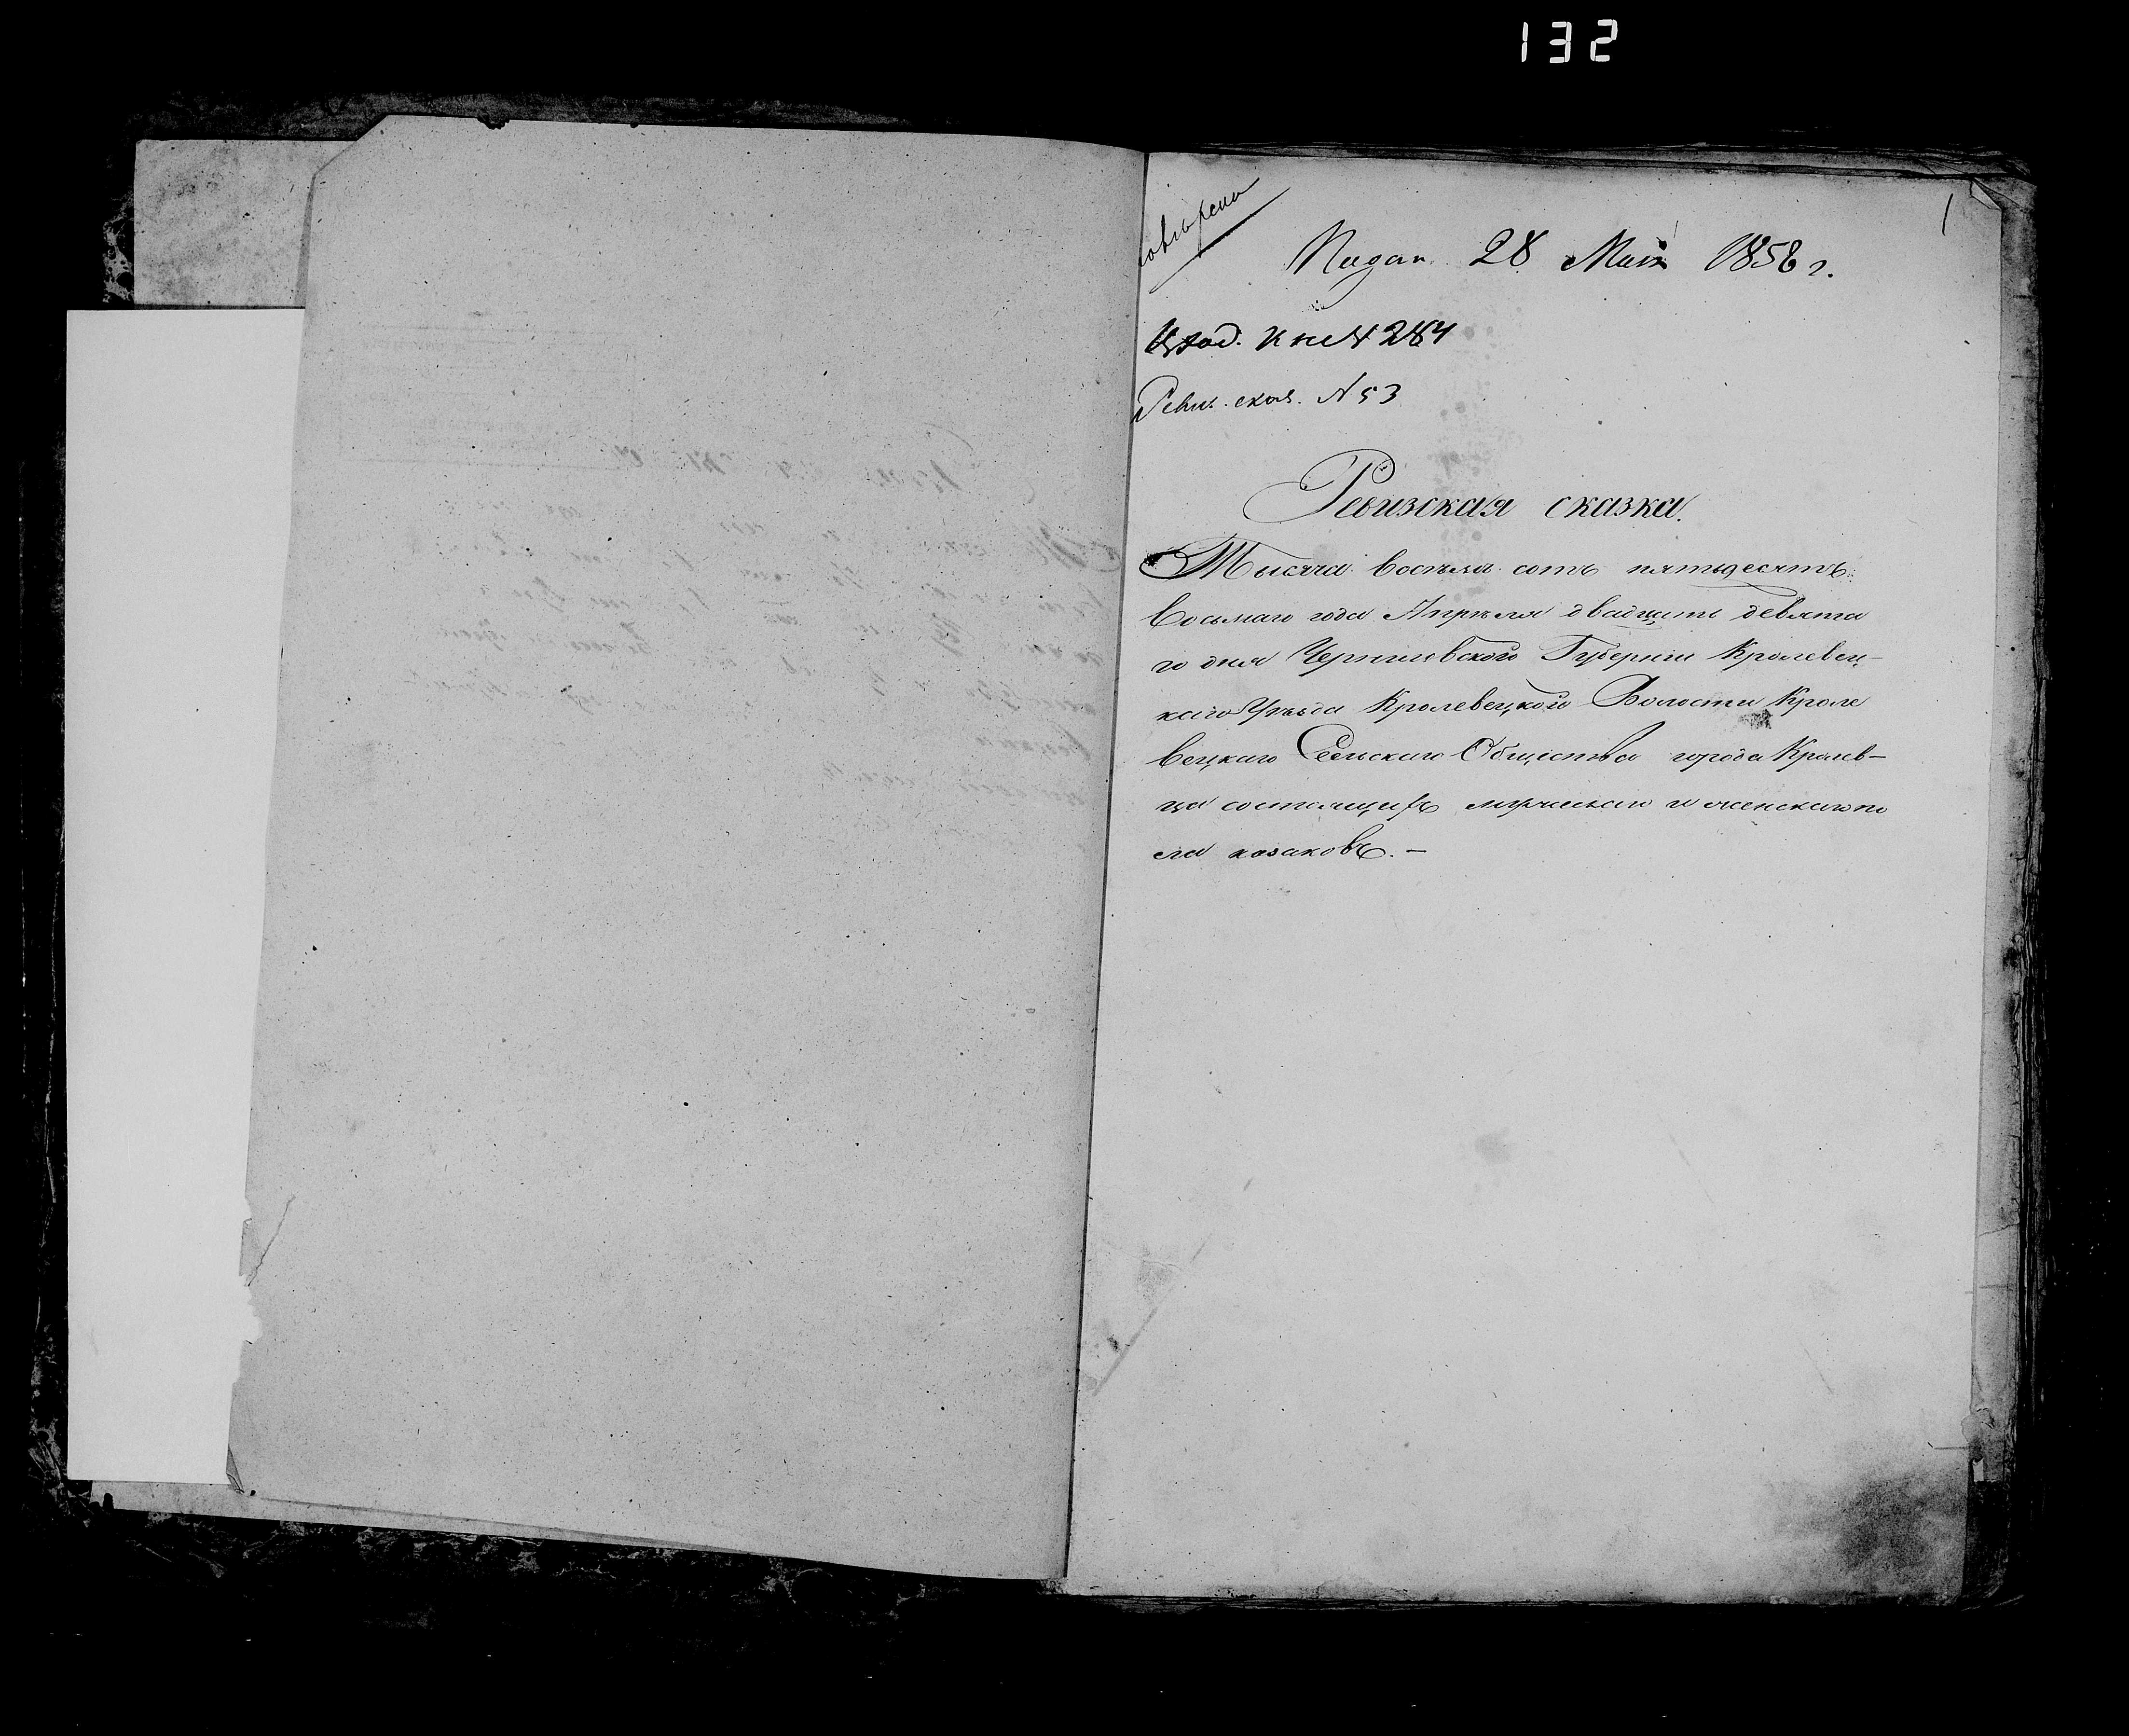 132
1
Подан. 28 Мая 1858 г.
Вход. Кн № 284
Ревиз. сказ. № 53
Ревизская сказка.
Тысяча восемь сотъ пятьдесятъ
восьмаго года Апрѣля двадцать девята
го дня Черниговской Губернии Кролевец-
каго Уѣзда Кролевецкой Волости Кроле
вецкаго Сельскаго Общества города Кролев-
ца состоящихъ мужескаго и женскаго по
ла казаковъ. -